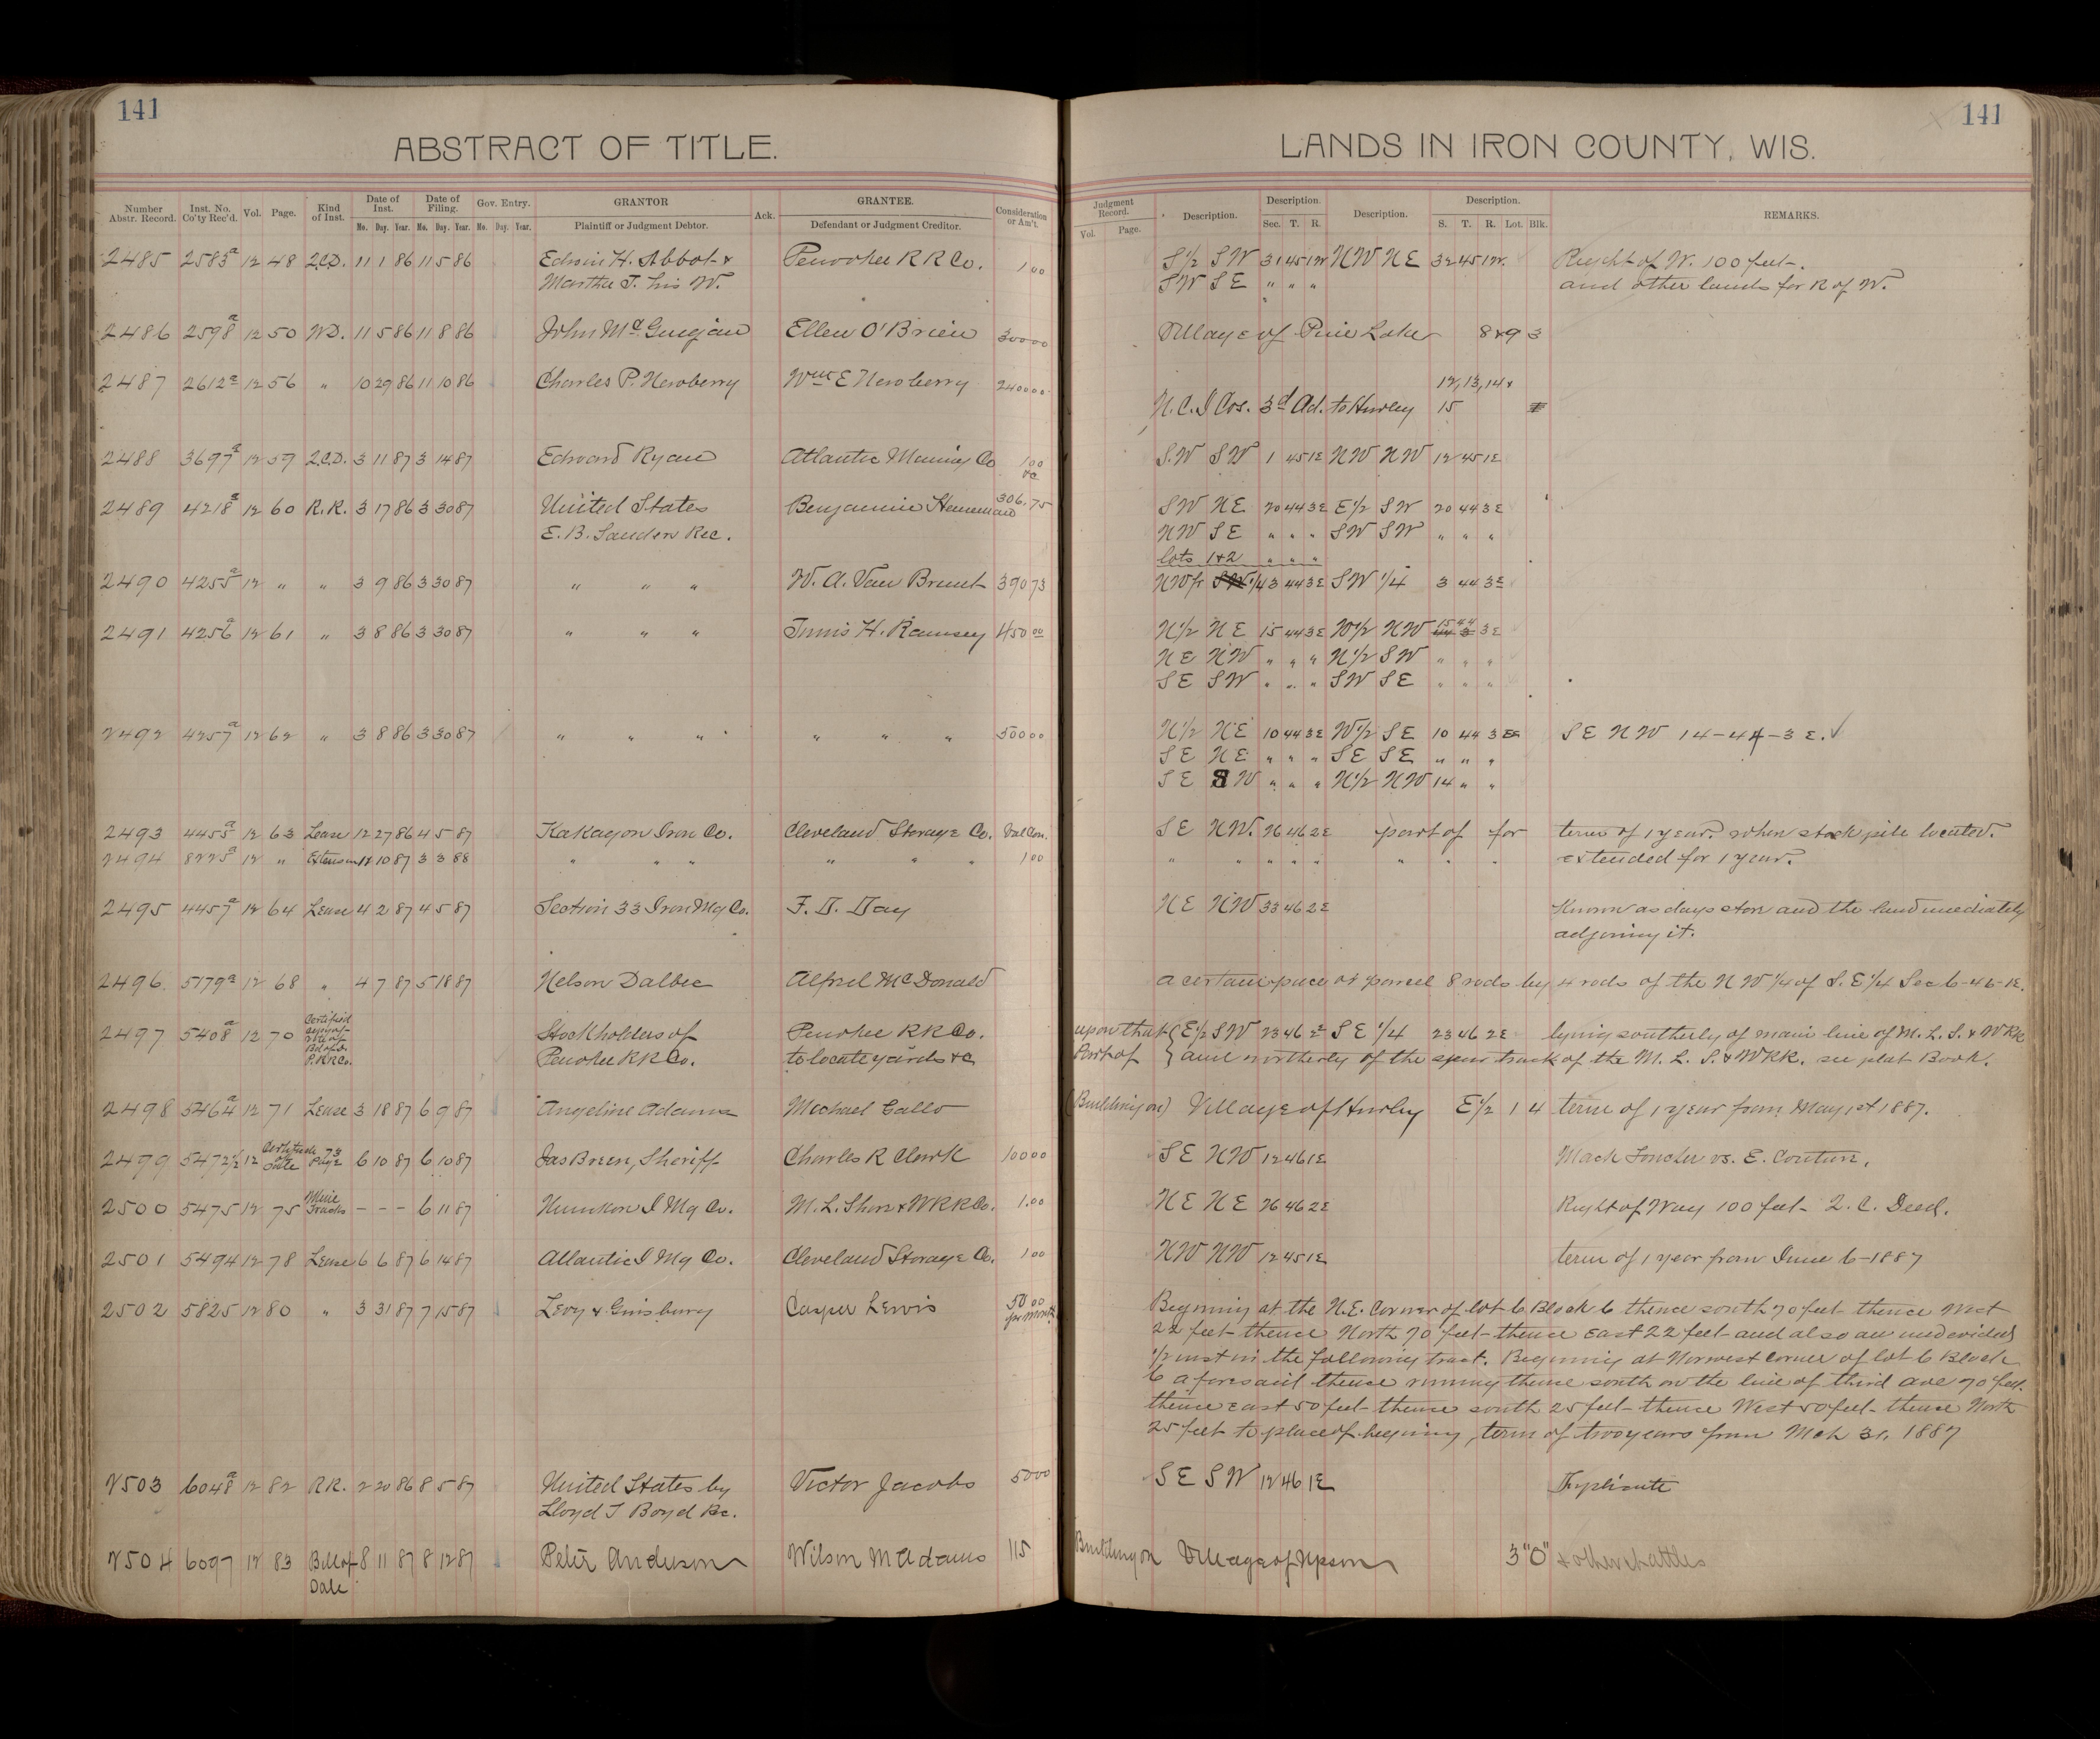 141
141
ABSTRACT OF TITLE.
LANDS IN IRON COUNTY, WIS.
Number Abstr. Record. Inst. No. Co'ty Rec'd. Vol. Page. Kind of Inst. Date of Inst. Date of Filing. Gov. Entry. GRANTOR Ack. GRANTEE. Consideration or Am't. Judgment Record. Description. Description. Description. Description. REMARKS.
Mo. Day. Year. Mo. Day. Year. Mo. Day. Year. Plaintiff or Judgment Debtor. Defendant or Judgment Creditor. Vol. Page. Sec. T. R. S. T. R. Lot. Blk.
2485 2583a 12 48 Q.C.D. 11 1 86 11 5 86 Edwin H. Abbot & Penokee R R Co. 1 00 S 1/2 SW 31 45 1W NW NE 32 45 1W. Right of W. 100 feet.
Martha T. his W. SW SE " " " and other lands for R of W.
2486 2598a 12 50 W.D. 11 5 86 11 8 86 John Mc Ellen O'Brien 300 00 Village of Pine Lake 8&9 3
2487 2612a 12 56 " 10 29 86 11 10 86 Charles P. Newberry Wm E Newberry 2400 00 12, 13, 14 &
N.C.I Cos. 3d Ad. to Hurley 15
2488 3697a 12 59 Q.C.D. 3 11 87 3 14 87 Edward Ryan Atlantic Mining Co 1 00 &c S.W SW 1 45 1E NW NW 12 45 1E
2489 4218a 12 60 R.R. 3 17 86 3 30 87 United States Benjamin 306.75 SW NE 20 44 3E E 1/2 SW 20 44 3E
E. B. Sanders Rec. NW SE " " " SW SW " " "
lots 1&2 " " "
2490 4255a 12 " " 3 9 86 3 30 87 " " " W. A. Van Brunt 390 73 NW fr 1/4 3 44 3E SW 1/4 3 44 3E
2491 4256a 12 61 " 3 8 86 3 30 87 " " " Innis H. Ramsey 450 00 N 1/2 NE 15 44 3E W 1/2 NW 15 44 3E
NE NW " " " N 1/2 SW " " "
SE SW " " " SW SE " " "
2492 4257a 12 62 " 3 8 86 3 30 87 " " " " " " 500 00 N 1/2 NE 10 44 3E W 1/2 SE 10 44 3E SE NW 14-44-3 E. ✓
SE NE " " " SE SE " " "
SE SW " " " N 1/2 NW 14 " "
2493 4455a 12 63 Lease 12 27 86 4 5 87 Kakagon Iron Co. Cleveland Storage Co. Val Con. SE NW. 26 46 2E part of for term of 1 year. when stock pile located.
2494 8225a 12 " Extension 12 10 87 3 3 88 " " " " " " 1 00 " " " " " " " " extended for 1 year.
2495 4457a 12 64 Lease 4 2 87 4 5 87 Section 33 Iron Mg Co. F. D. Day NE NW 33 46 2E Known as days store and the land imediately
adjoining it.
2496. 5179a 12 68 " 4 7 87 5 18 87 Nelson Dalbec Alfred McDonald a certain piece or parcel 8 rods by 4 rods of the NW 1/4 of S.E 1/4 Sec 6-46-1E.
2497 5408a 12 70 Certified copy of vote of Bd of D. P.R R Co. Stockholders of Penokee RR Co. upon that { E 1/2 SW 23 46 2E SE 1/4 23 46 2E lying southerly of main line of M. L. S. & W RR
Penokee R R Co. to locate yards &c Part of } and northerly of the spur track of the M. L. S. & W RR. see plat Book.
2498 5464a 12 71 Lease 3 18 87 6 9 87 Angeline Adams Michael Gallo (Building on) Village of Hurley E 1/2 1 4 term of 1 year from May 1st 1887.
2499 5472 1/2 12 Certificate of Sale 73 Page 6 10 87 6 10 87 Jas Breen, Sheriff Charles R Clark 100 00 SE NW 12 46 1E Mack vs. E. Couture.
2500 5475 12 75 Mine Tracks - - - 6 11 87 I Mg Co. M. L. Shore & W R R Co. 1.00 NE NE 26 46 2E Right of Way 100 feet Q. C. Deed.
2501 5494 12 78 Lease 6 6 87 6 14 87 Atlantic I Mg Co. Cleveland Storage Co. 1 00 NW NW 12 45 1E term of 1 year from June 6-1887
2502 5825 12 80 " 3 31 87 7 15 87 Levy & Ginsburg Casper Lewis 50 00 per month Begining at the N.E. Corner of lot 6 Block 6 thence south 70 feet thence West
22 feet thence North 70 feet thence East 22 feet and also an undevided
1/2 inst in the following tract. Begining at Norwest Corner of lot 6 Block
6 aforesaid thence running thence south on the line of third ave 70 feet.
thence East 50 feet thence south 25 feet thence West 50 feet thence North
25 feet to place of begining, term of two years from Mch 31, 1887
2503 6048a 12 82 R.R. 2 20 86 8 5 87 United States by Victor Jacobs 50 00 SE SW 12 46 1E Triplicate
Lloyd T Boyd Rec.
2504 6097 12 83 Bill of Sale 8 11 87 8 12 87 Peter Anderson Wilson McAdams 115 Building on Village of Upson 3 "O" & other chattles